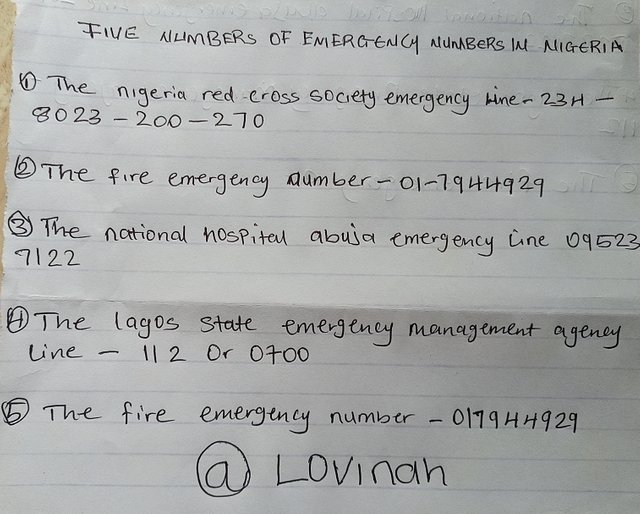 FIVE NUMBERS OF EMERGENCY NUMBERS IN NIGERIA
① The nigeria red cross society emergency line - 234 -
8023 - 200 - 270
② The fire emergency number - 01-7944929
③ The national hospital abuja emergency line 09523
7122
④ The lagos state emergency management agency
line - 112 Or 0700
⑤ The fire emergency number - 017944929
@ LOVINAH